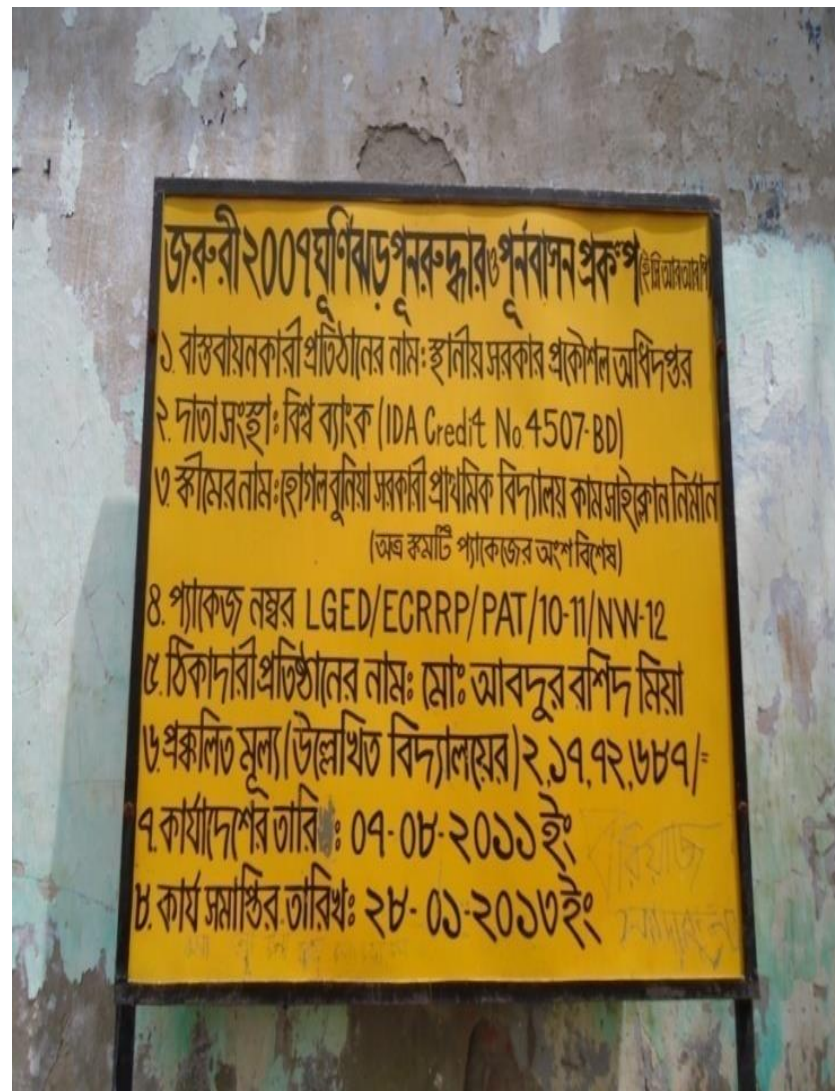 জরুরী ২০০৭ ঘূর্ণিঝড় পূনরুদ্ধার ও পূর্নবাসন প্রকল্প (ইসিআরআরপি)
১. বাস্তবায়নকারী প্রতিঠানের নাম: স্থানীয় সরকার প্রকৌশল অধিদপ্তর
২. দাতা সংস্থা: বিশ্ব ব্যাংক (IDA Credit No. 4507-BD)
৩. স্কীমের নাম: হোগল বুনিয়া সরকারী প্রাথমিক বিদ্যালয় কাম সাইক্লোন নির্মান
(অত্র স্কমটি প্যাকেজের অংশ বিশেষ)
৪. প্যাকেজ নম্বর LGED/ECRRP/PAT/10-11/NW-12
৫. ঠিকাদারী প্রতিষ্ঠানের নাম: মোঃ আবদুর রশিদ মিয়া
৬. প্রক্কলিত মূল্য (উল্লেখিত বিদ্যালয়ের) ২,১৭,৭২,৬৮৭/=
৭. কার্যাদেশের তারি : ০৭-০৮-২০১১ ইং
৮. কার্য সমাপ্তির তারিখ: ২৮-০১-২০১৩ ইং
রিয়াজ